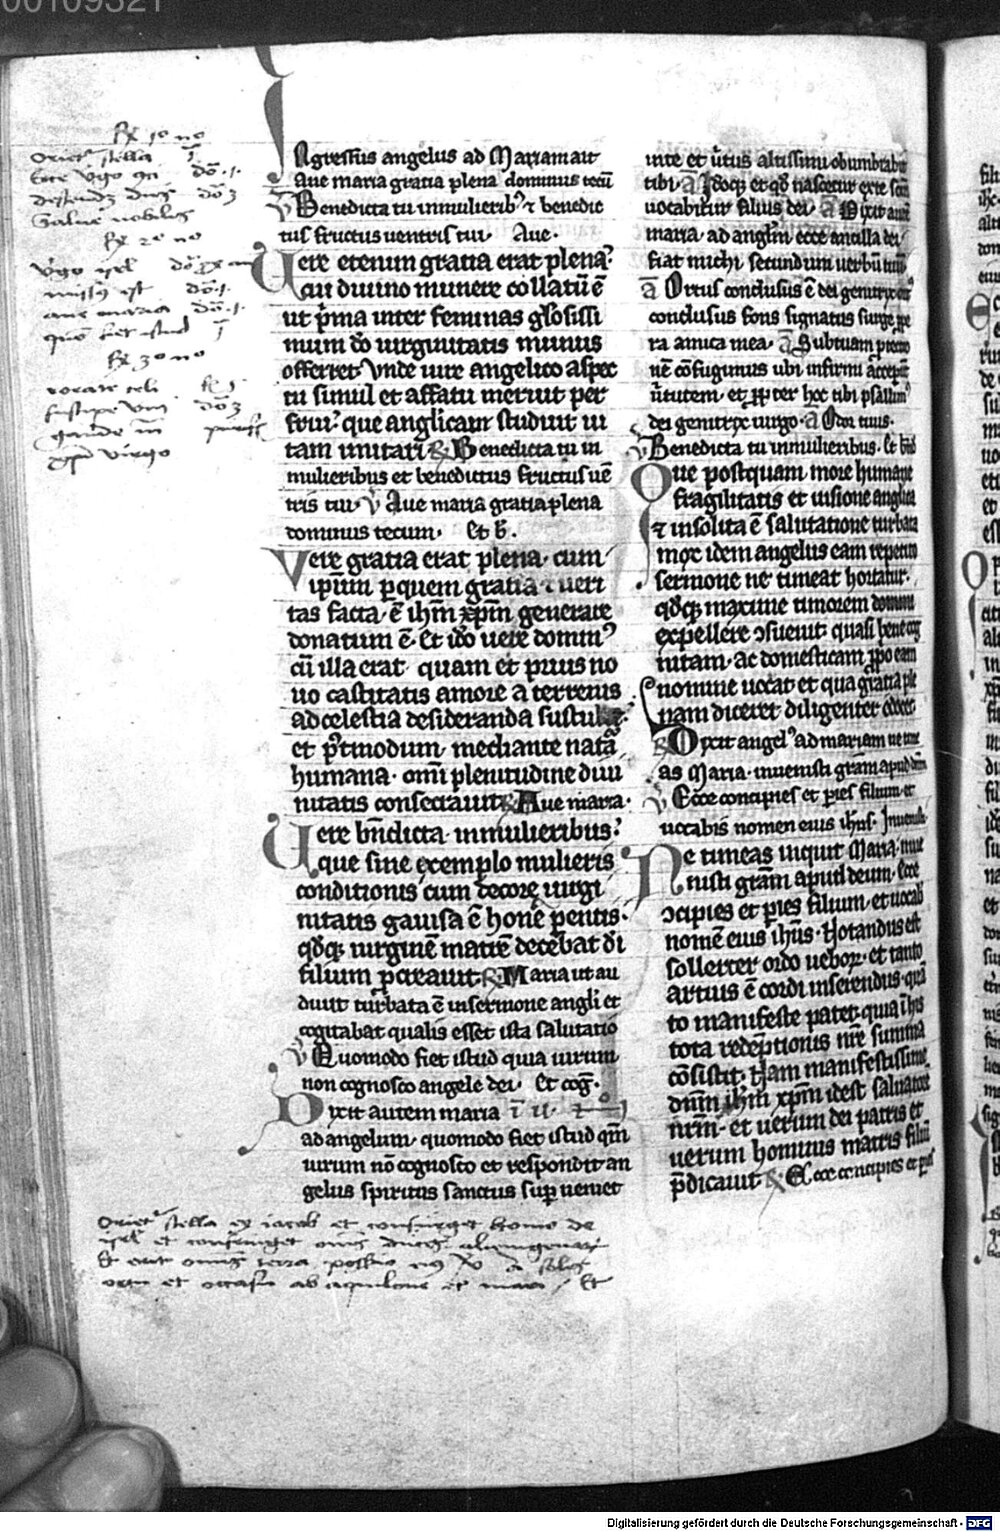 00109321
Rx 1o no
Oriet' stella
Ecce virgo
Salve nobilis
Rx 2o no
virgo isrl
missus est
ave maria
quo fiet istud
Rx 3o no
rorate celi
suscipe verbum
gaude m
virgo
Ingressus angelus ad Mariam ait
Aue maria gratia plena dominus tecū
℣ Benedicta tu in mulierib' ⁊ benedic
tus fructus uentris tui. Aue.
Uere etenim gratia erat plena?
cui diuino munere collatū ē
ut pͥma inter feminas gl'osissi
mum do uirginitatis munus
offerret Unde iure angelico aspec
tu simul et affatu meruit per
frui? que anglicam studuit ui
tam imitari ℟ Benedicta tu in
mulieribus et benedictus fructus uē
tris tui ℣ Aue maria gratia plena
dominus tecum. Et b.
Vere gratia erat plena. cum
ipsum per quem gratia ⁊ ueri
tas facta ē ihm xpm generare
donatum ē. Et ido uere domin'
cū illa erat quam et prius no
uo castitatis amore a terrenis
ad celestia desideranda sustulit.
et pͦtmodum mediante natā
humana. omi plenitudine diui
nitatis consecrauit ℟ Aue maria.
Uere bn̄dicta in mulieribus?
que sine exemplo mulieris
conditionis cum decore uirgi
nitatis gauisa ē honē pentis.
qđq; uirginē matrē decebat di
filium pcreauit ℟ Maria ut au
diuit turbata ē in sermone angli et
cogitabat qualis esset ista salutatio
℣ Quomodo fiet istud quia uirum
non cognosco angele dei. Et cog.
Dixit autem maria
ad angelum. quomodo fiet istud qm̄
uirum nō cognosco et respondit an
gelus spiritus sanctus sup ueniet
in te et u'tus altissimi obumbrabit
tibi ā Idoq; et qđ nascetur ex te scm̄
uocabitur filius dei. ā Dixit autē
maria. ad anglm̄ ecce ancilla dei
fiat michi secundum uerbū tuū
ā Ortus conclusus ē dei genitrix ort'
conclusus fons signatus surge ppe
ra amica mea. ā Sub tuam ptectio
nē cōfugimus ubi infirmi accepͥt
u'tutem. et ppter hoc tibi psallim'
dei genitrix uirgo. ā Odor tuus.
℣ Benedicta tu in mulieribus. Et bnd
Que postquam more humane
fragilitatis et uisione anglica
⁊ insolita ē salutatione turbata
mox idem angelus eam repetito
sermone ne timeat hortatur.
qđq; maxime timorem
expellere ↄsueuit quasi bene cog
nitam. ac domesticam ppo eam
nomine uocat et qua gratia ple
nam diceret diligenter
℟ Dixit angel' ad mariam ne time
as Maria. inuenisti grām apud dm̄
℣ Ecce concipies et paries filium et
uocabis nomen eius ihus. Inuenisti
Ne timeas inquit Maria. inue
nisti grām apud deum. Ecce
ↄcipies et paries filium. et uocab
nomē eius ihūs. Notandus est
sollerter ordo uerborꝫ. et tanto
artius ē cordi inserendus. quā
to manifeste patet quia ī his
tota redeptionis nr̄e summa
cōsistit. Nam manifestissime
dn̄m ihm xpm idest saluatorē
nr̄m. et uerum dei patris et
uerum hominis matris filiū
p̄dicauit ℟ Ecce concipies et pies
Oriet' stella ex iacob et consurget homo de
isrl et confringet omnes duces alienigenarum
Et erit omnis terra possessio eius ℣ A solis
ortu et occasu ab aquilone et mari / Et
Digitalisierung gefördert durch die Deutsche Forschungsgemeinschaft - DFG